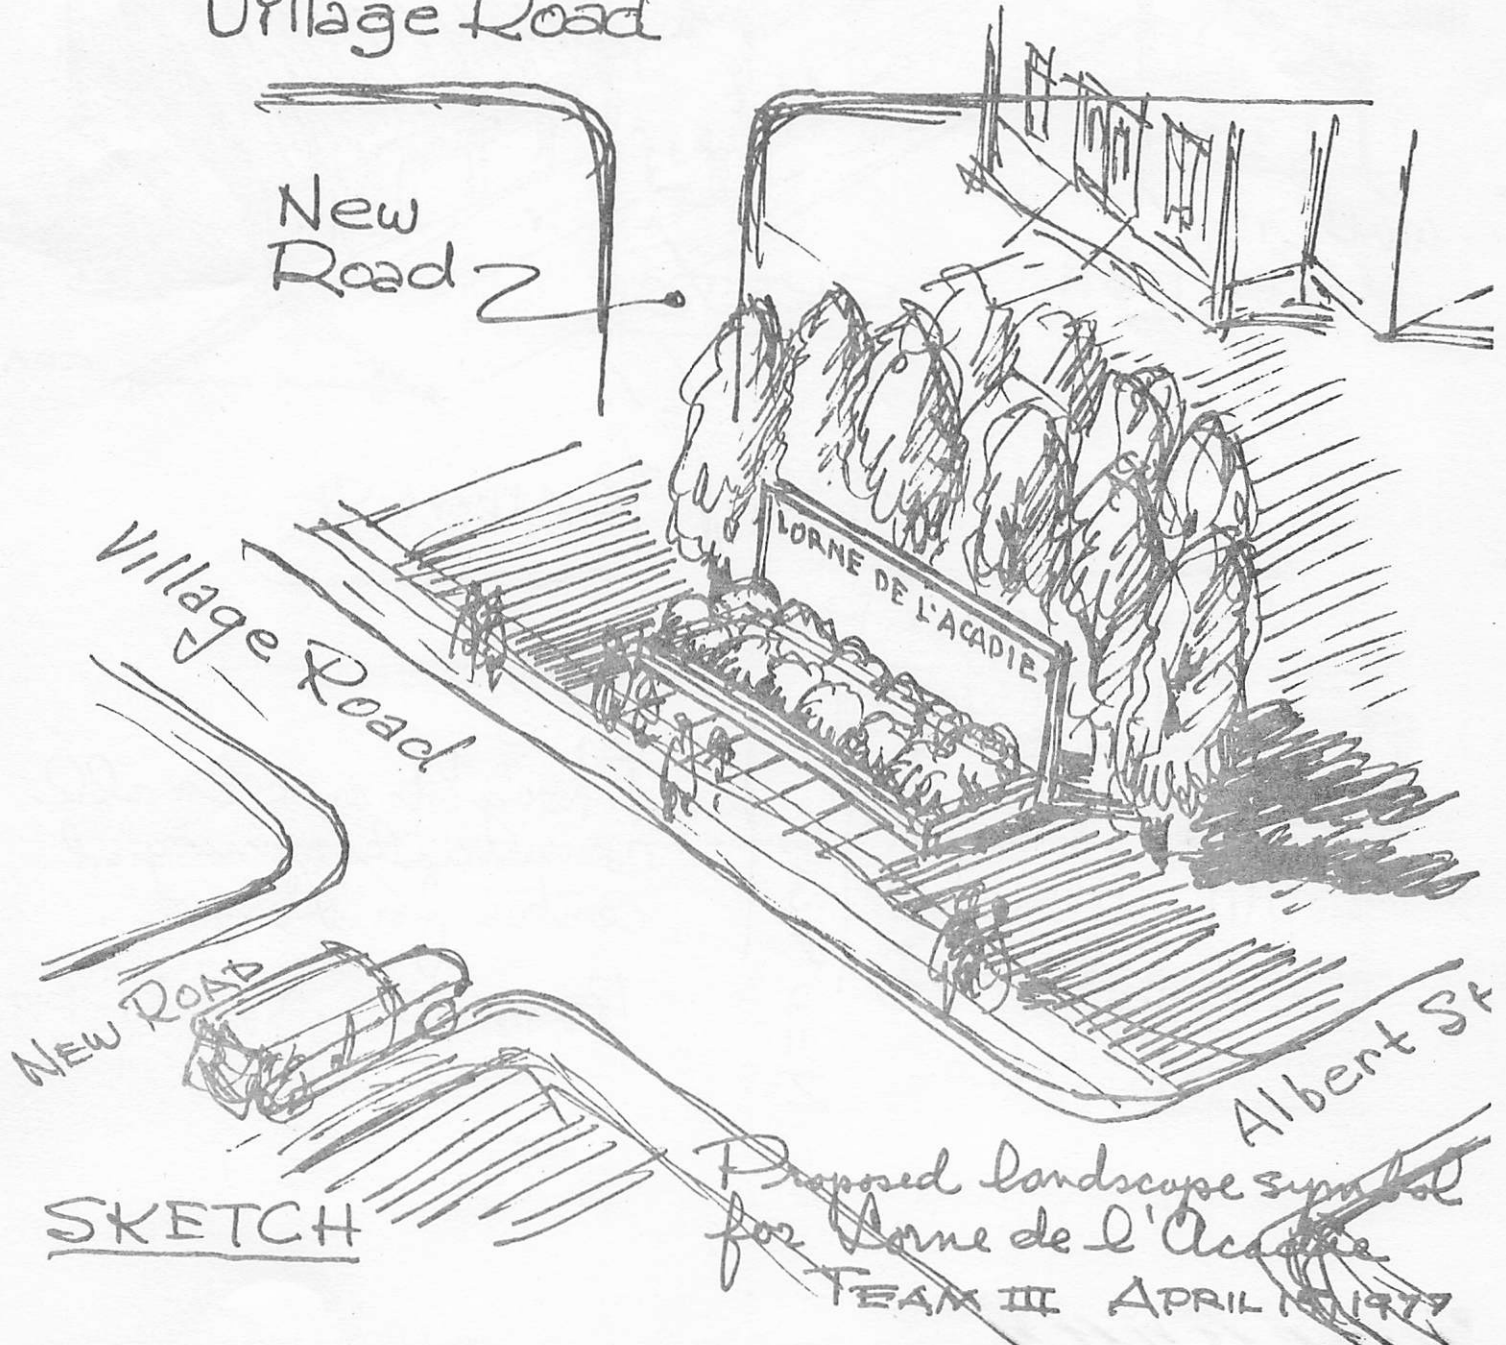 Village Road
New
Road
LORNE DE L'ACADIE
Village Road
NEW ROAD
Albert St
SKETCH
Proposed landscape symbol
for Lorne de l'Acadie
TEAM III APRIL 1977